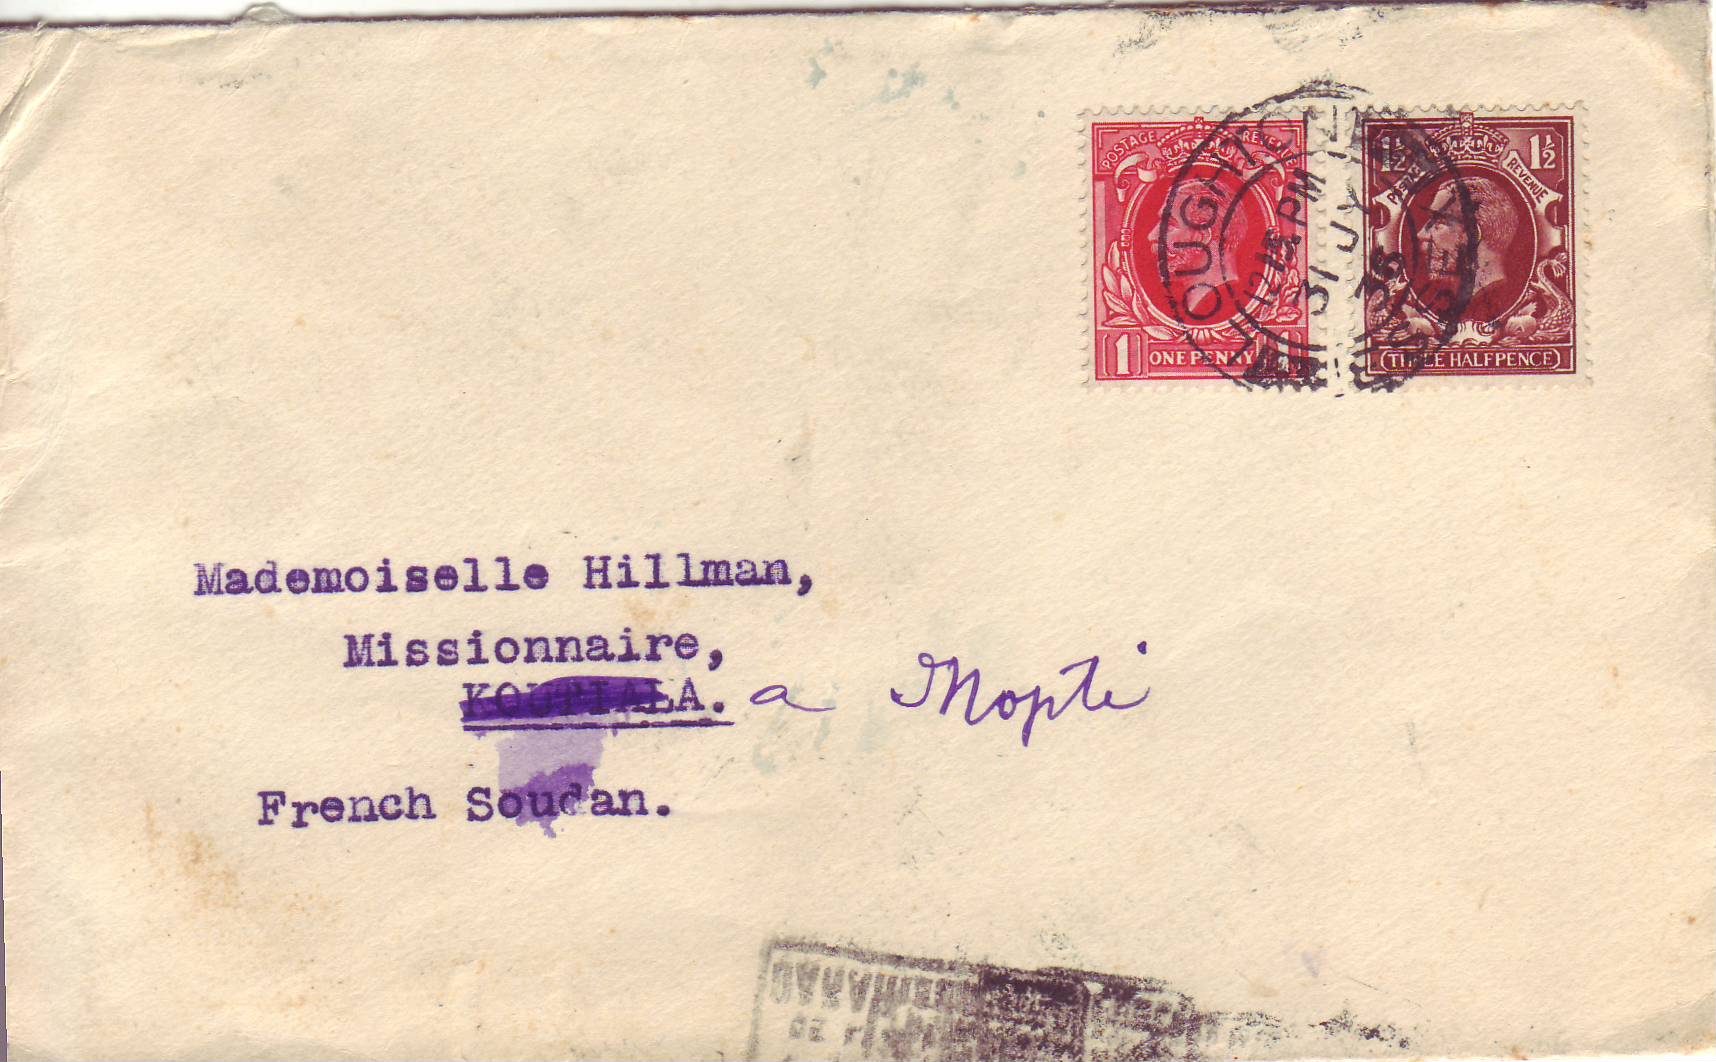 POSTAGE REVENUE
1 ONE PENNY
1½ 1½
POSTAGE REVENUE
THREE HALFPENCE
LOUGHTON
ESSEX
12 15 PM
31 JY
35
Mademoiselle Hillman,
Missionnaire,
KOUTIALA. a Mopti
French Soudan.
DE L'